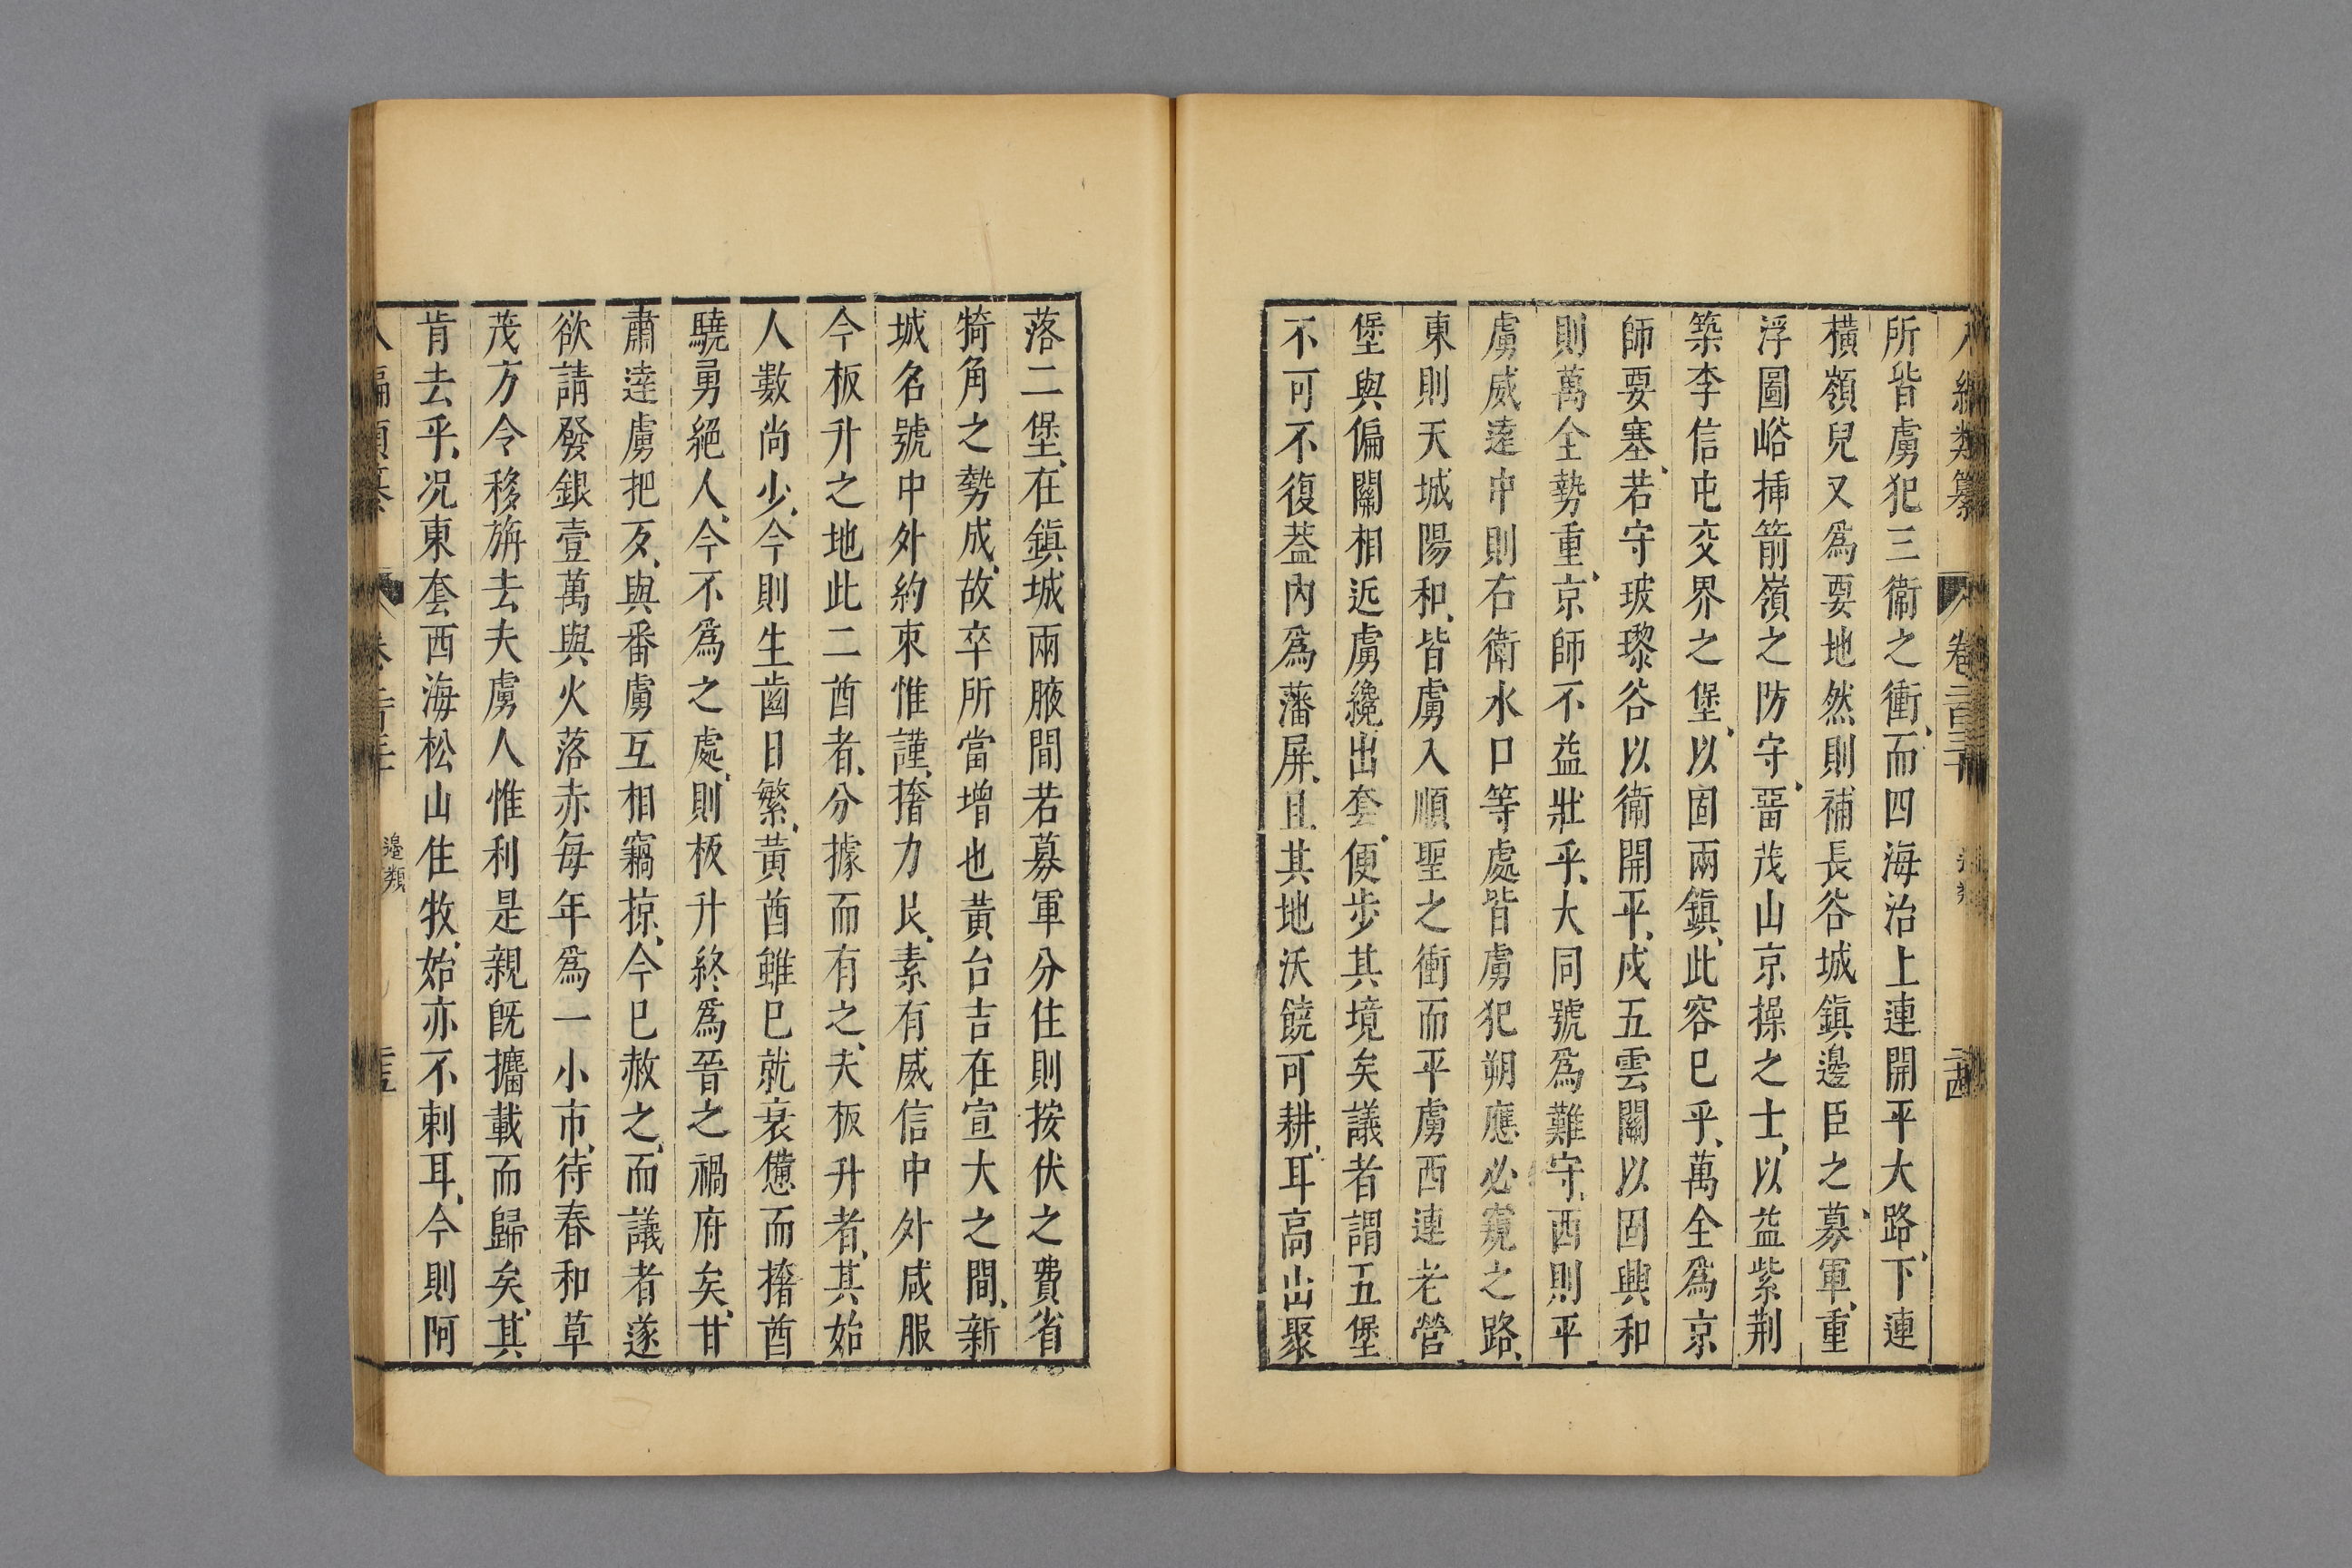 所皆虜犯三衞之衝而四海治上連開平大路下連
橫嶺兒又爲要地然則補長峪城鎮邊臣之募軍重
浮圖峪揷箭嶺之防守畱茂山京操之士以益紫荆
築李信屯交界之堡以固兩鎮此容已乎萬全爲京
師要塞若守玻瓈谷以衞開平戍五雲關以固興和
則萬全勢重京師不益壯乎大同號爲難守西則平
虜威遠中則右衛水口等處皆虜犯朔應必窺之路
東則天城陽和皆虜入順聖之衝而平虜西連老營
堡與偏關相近虜纔出套便步其境矣議者謂五堡
不可不復葢內爲藩屏且其地沃饒可耕耳高山聚
落二堡在鎮城兩腋間若募軍分住則按伏之費省
犄角之勢成故卒所當增也黃台吉在宣大之間新
城名號中外約束惟謹撦力艮素有威信中外咸服
今板升之地此二酋者分據而有之夫板升者其始
人數尚少今則生齒日繁黃酋雖已就衰憊而撦酋
驍勇絕人今不爲之處則板升終爲晉之禍府矣甘
肅逹虜把歹與番虜互相竊掠今已赦之而議者遂
欲請發銀壹萬與火落赤每年爲一小市待春和草
茂方令移旃去夫虜人惟利是親旣攟載而歸矣其
肯去乎况東套西海松山住牧始亦不剌耳今則阿
邊類